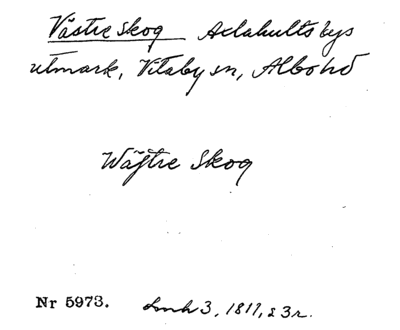 Västre Skog Adahults bys
utmark, Vitaby sn, Albo hd
Wästre Skog
Nr 5973. Lmh 3, 1811, s 3r.